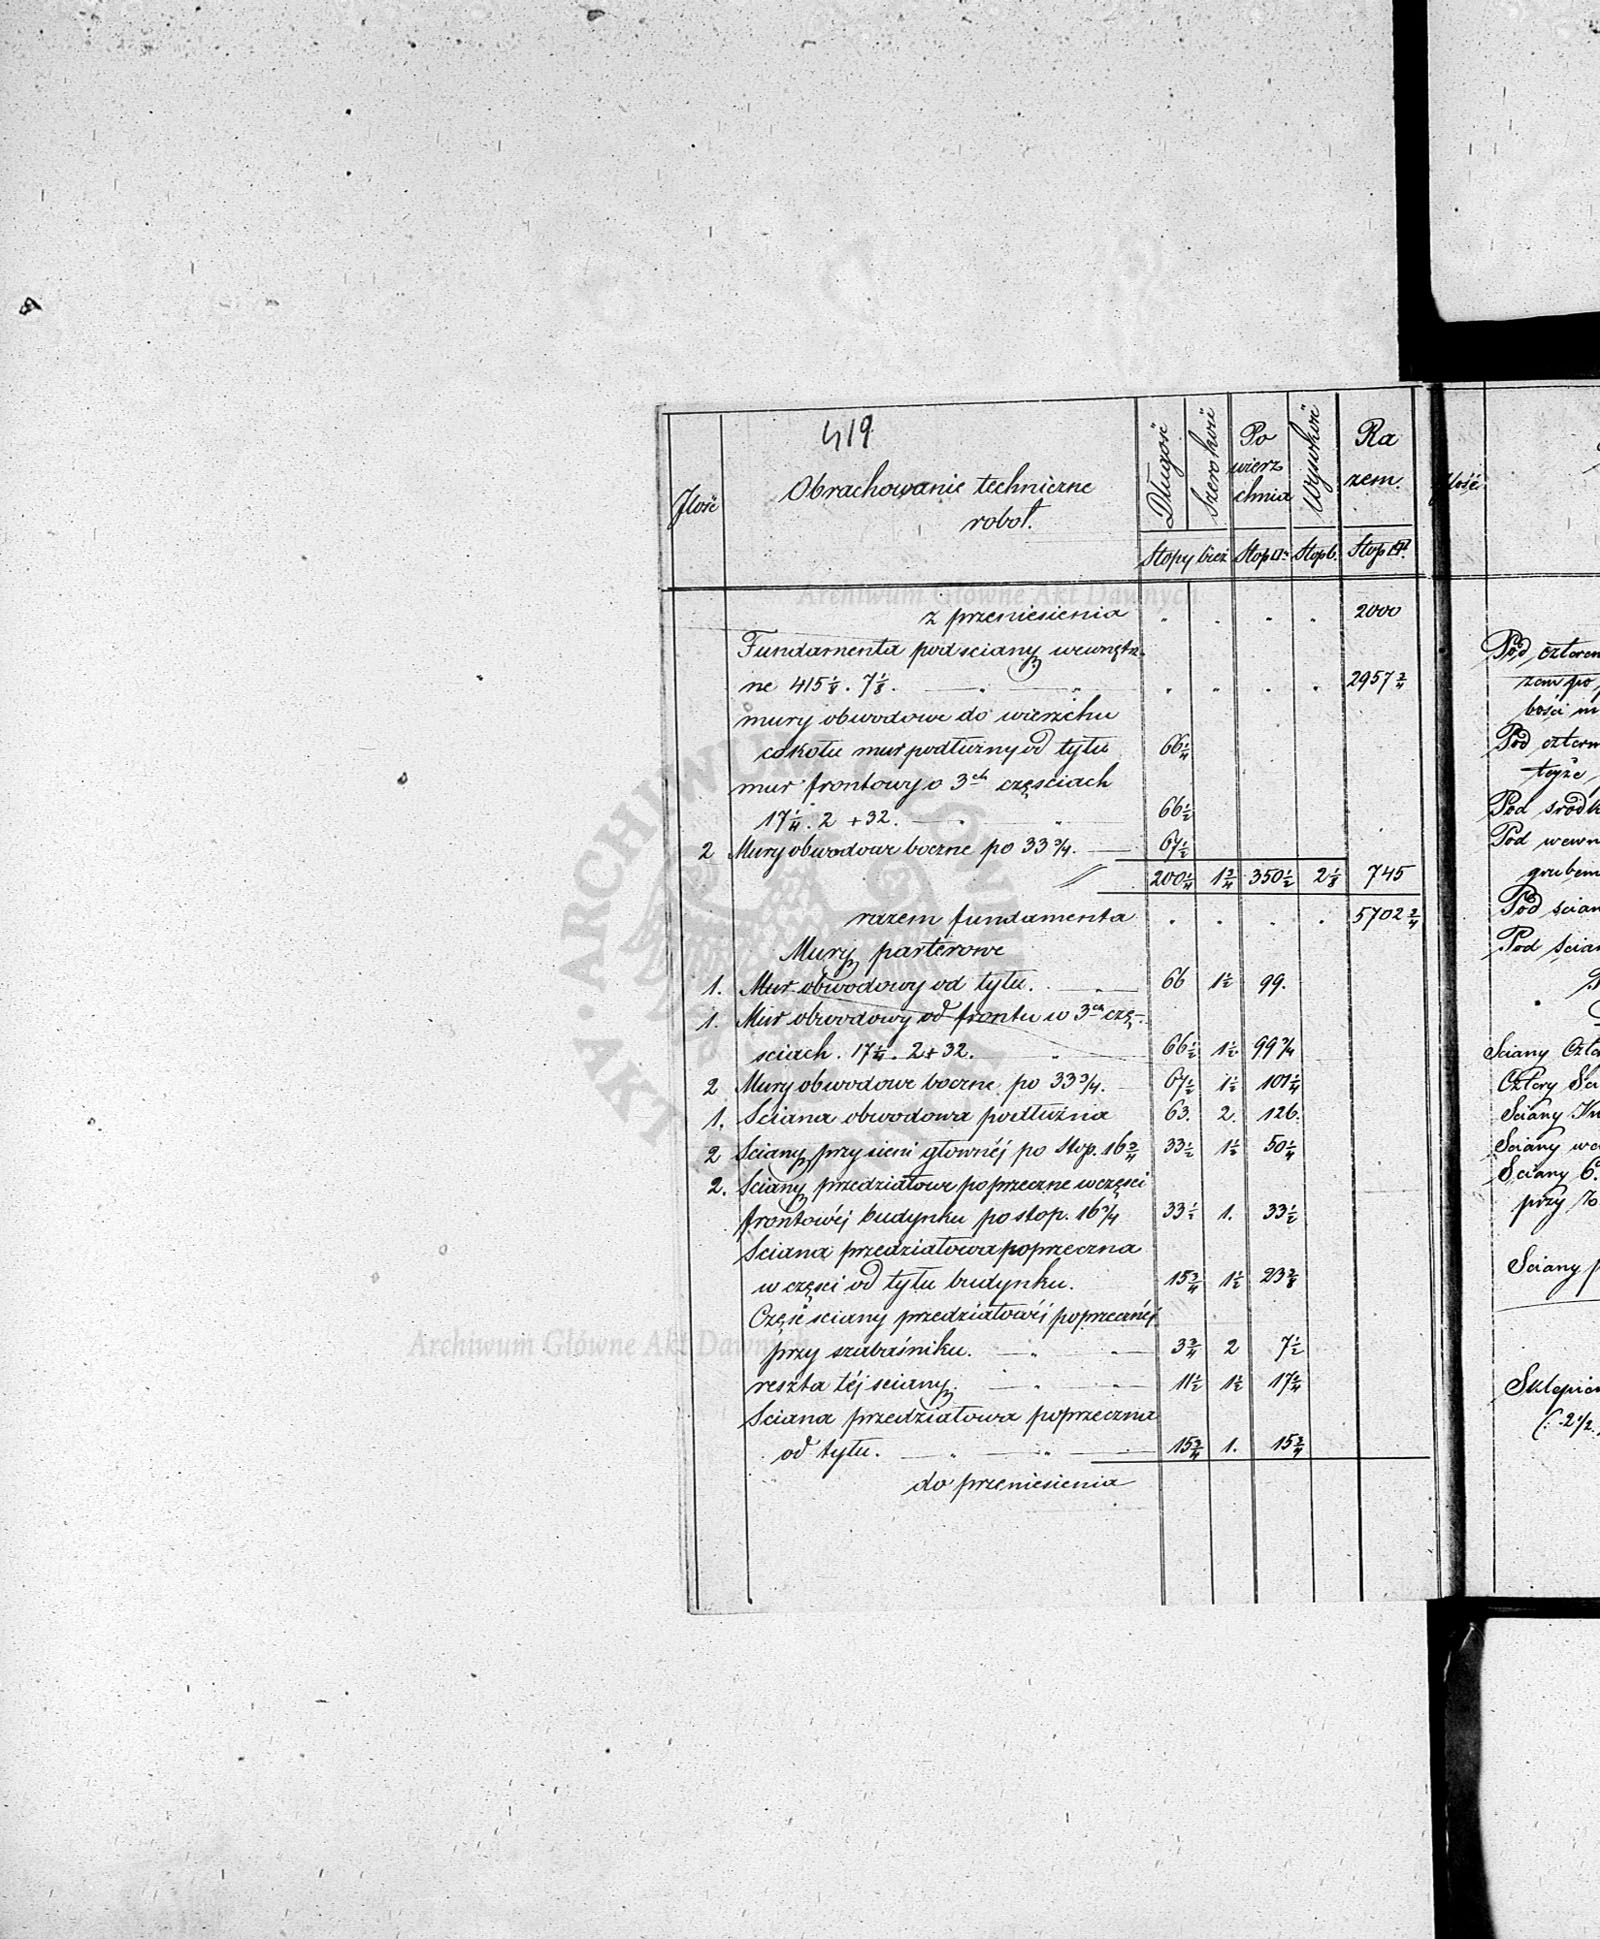 419
Ilość
Obrachowanie techniczne
robot.
Długość
Szerokość
Po
wierz
chnia
Wysokość
Ra
zem.
Stopy bież
Stop □
Stop b.
Stop
z przeniesienia . . . . 2000
Fundamenta pod sciany wewnętrz-
ne 415 1/8 . 7 1/8 . . . . . 2957 3/4
mury obwodowe do wierzchu
cokołu mur podłużny od tyłu 66 1/4
mur frontowy o 3ch częsciach
17 1/4 . 2 + 32. 66 1/2
2 Mury obwodowe boczne po 33 3/4. 67 1/2
200 1/4 1 3/4 350 1/2 2 1/8 745
razem fundamenta . . . . 5702 3/4
Mury parterowe
1. Mur obwodowy od tyłu. 66 1 1/2 99.
1. Mur obwodowy od frontu w 3ch czę-
sciach . 17 1/4 . 2 + 32. 66 1/2 1 1/2 99 3/4
2 Mury obwodowe boczne po 33 3/4. 67 1/2 1 1/2 101 1/4
1. Sciana obwodowa podłużna 63. 2. 126.
2 Sciany przy sieni głownéj po Stop. 16 3/4 33 1/2 1 1/2 50 1/4
2. Sciany przedziałowe poprzeczne w częsci
frontowéj budynku po stop. 16 3/4 33 1/2 1. 33 1/2
Sciana przedziałowa poprzeczna
w częsci od tyłu budynku. 15 3/4 1 1/2 23 3/8
Część sciany przedziałowéj poprzecznéj
przy szabaśniku. 3 3/4 2 7 1/2
reszta téj sciany. 11 1/2 1 1/2 17 1/4
Sciana przedziałowa poprzeczna
od tyłu. 15 3/4 1. 15 3/4
do przeniesienia
Ilość
Pod
zem po
bości m
Pod
tejże,
Pod
Pod wewn
grubem
Pod scian
Pod Scian
Sciany
Cztery Sci
Sciany
Sciany
Sciany 6.
przy
Sciany p
Sklepien
(. 2 1/2.
Archiwum Główne Akt Dawnych
Archiwum Główne Akt Dawnych